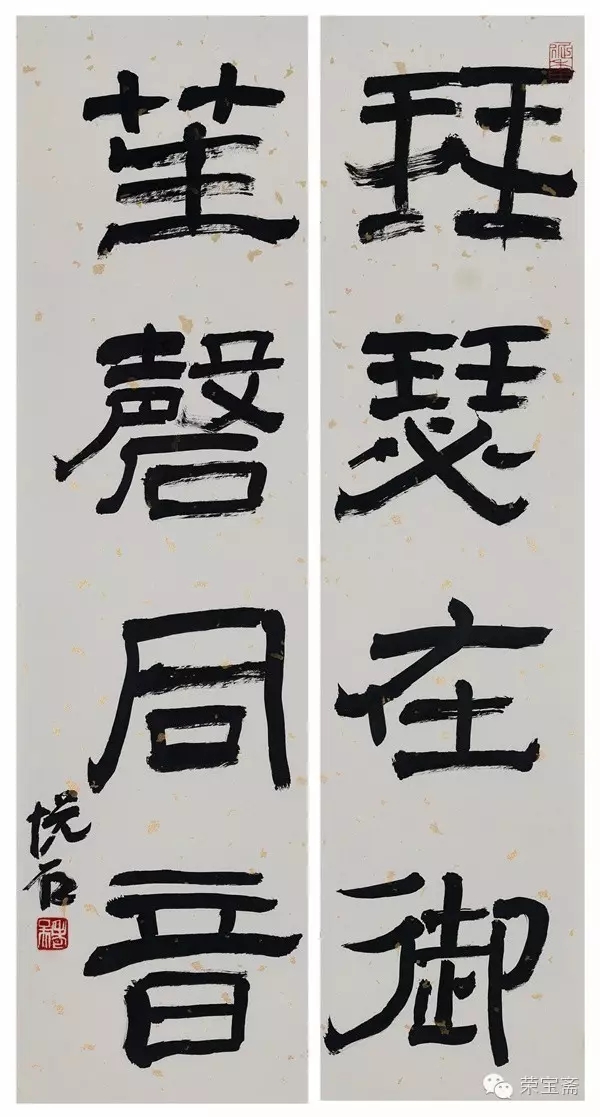 琴瑟在御
笙磬同音
悦石
荣宝斋